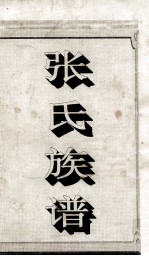 张氏族谱